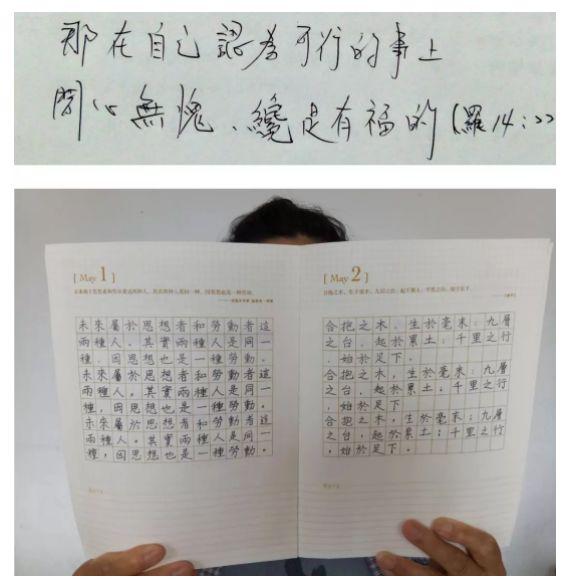 那在自己認為可行的事上
問心無愧、纔是有福的(羅14:22
[ May 1 ]
[ May 2 ]
未來屬於思想者和勞動者這
兩種人。其實兩種人是同一
種,因思想也是一種勞動。
未來屬於思想者和勞動者這
兩種人。其實兩種人是同一
種,因思想也是一種勞動。
未來屬於思想者和勞動者這
兩種人。其實兩種人是同一
種,因思想也是一種勞動。
合抱之木,生於毫末;九層
之台,起於累土;千里之行
,始於足下。
合抱之木,生於毫末;九層
之台,起於累土;千里之行
,始於足下
合抱之木,生於毫末;九層
之台,起於累土;千里之行
,始於足下。